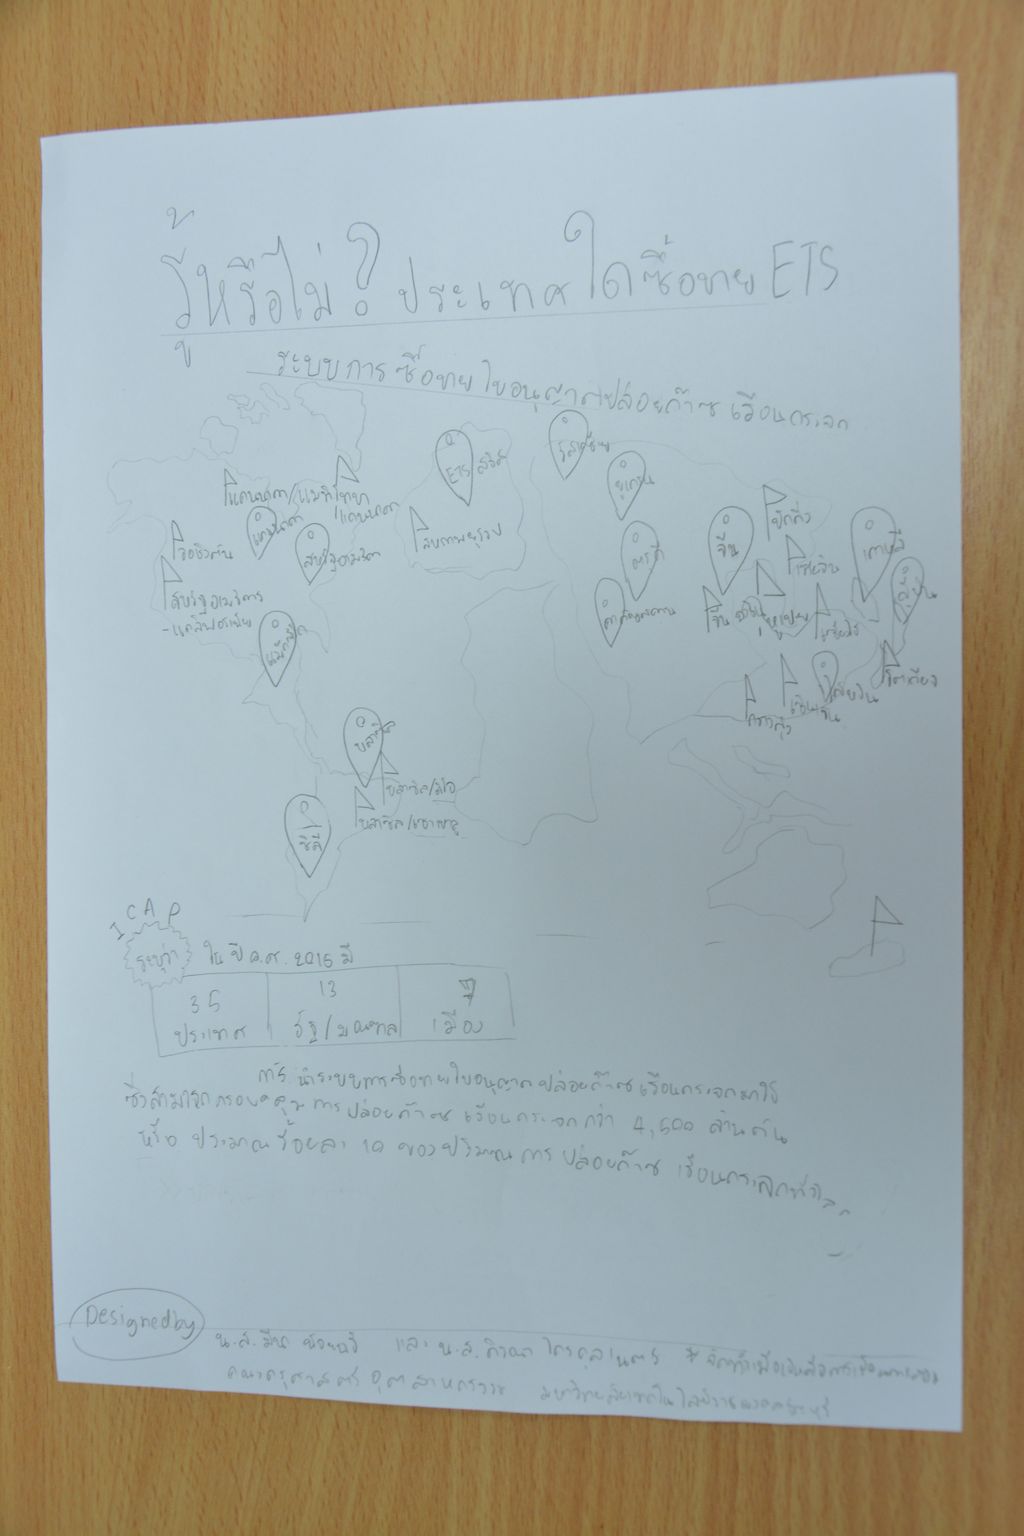 รู้หรือไม่? ประเทศใดซื้อขาย ETS
ระบบการซื้อขายใบอนุญาตปล่อยก๊าซเรือนกระจก
ETS สวิส
รัสเซีย
ยูเครน
แคนาดา
สหรัฐอเมริกา
สหภาพยุโรป
ตุรกี
จีน
ปักกิ่ง
เกาหลี
ญี่ปุ่น
วอชิงตัน
สหรัฐอเมริการ
-แคลิฟอร์เนีย
เม็กซิโก
คาซัคสถาน
หูเป่ย
เซี่ยงไฮ้
ไต้หวัน
เซินเจิ้น
กวางตุ้ง
บราซิล
บราซิล/ริโอ
บราซิล/เซาเปาลู
ชิลี
ICAP
ระบุว่า ในปี ค.ศ. 2015 มี
35 13 7
ประเทศ รัฐ/มณฑล เมือง
การนำระบบการซื้อขายใบอนุญาตปล่อยก๊าซเรือนกระจกมาใช้
ซึ่งสามารถครอบคลุมการปล่อยก๊าซเรือนกระจกกว่า 4,500 ล้านตัน
หรือ ประมาณร้อยละ 10 ของปริมาณการปล่อยก๊าซเรือนกระจกทั่วโลก
Designed by น.ส. และ น.ส.
คณะครุศาสตร์อุตสาหกรรม